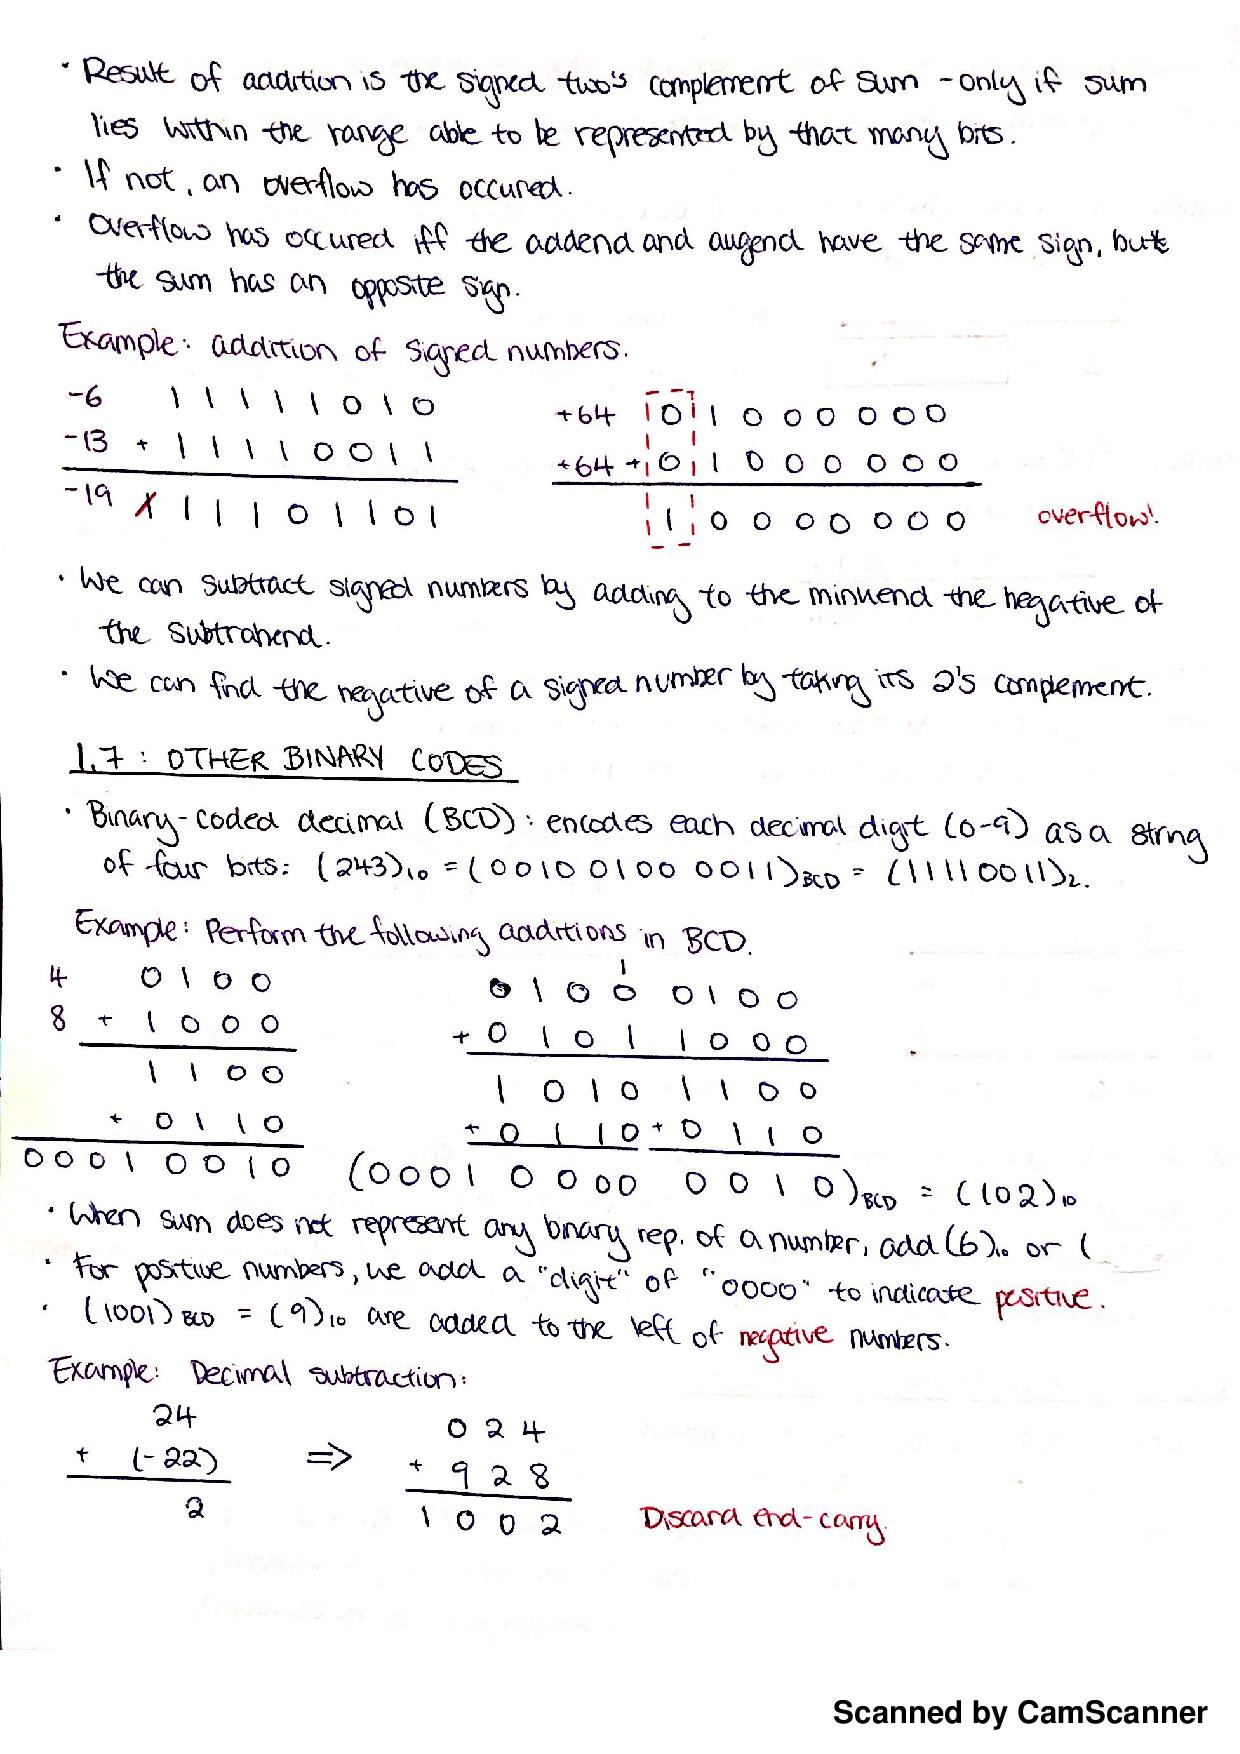 · Result of addition is the signed two's complement of sum - only if sum
lies within the range able to be represented by that many bits.
· If not, an overflow has occured.
· Overflow has occured iff the addend and augend have the same sign, but
the sum has an opposite sign.
Example: addition of signed numbers.
-6 1 1 1 1 1 0 1 0
-13 + 1 1 1 1 0 0 1 1
-19 1 1 1 1 0 1 1 0 1
+64 0 1 0 0 0 0 0 0
+64 + 0 1 0 0 0 0 0 0
1 0 0 0 0 0 0 0 overflow!
· We can subtract signed numbers by adding to the minuend the negative of
the subtrahend.
· We can find the negative of a signed number by taking its 2's complement.
1.7 : OTHER BINARY CODES
· Binary-coded decimal (BCD): encodes each decimal digit (0-9) as a string
of four bits: (243)10 = (0010 0100 0011)BCD = (11110011)2.
Example: Perform the following additions in BCD.
4 0 1 0 0
8 + 1 0 0 0
1 1 0 0
+ 0 1 1 0
0 0 0 1 0 0 1 0
1
0 1 0 0 0 1 0 0
+ 0 1 0 1 1 0 0 0
1 0 1 0 1 1 0 0
+ 0 1 1 0 + 0 1 1 0
(0 0 0 1 0 0 0 0 0 0 1 0)BCD = (102)10
· When sum does not represent any binary rep. of a number, add (6)10 or (
· For positive numbers, we add a "digit" of "0000" to indicate positive.
· (1001)BCD = (9)10 are added to the left of negative numbers.
Example: Decimal subtraction:
24
+ (-22)
2
=>
0 2 4
+ 9 2 8
1 0 0 2 Discard end-carry.
Scanned by CamScanner